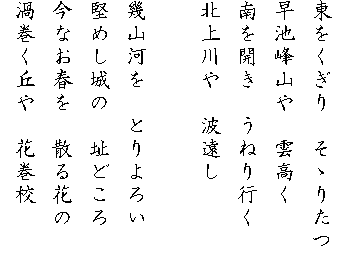 東をくぎり　そゝりたつ
早池峰山や　雲高く
南を開き　うねり行く
北上川や　波遠し
幾山河を　とりよろい
堅めし城の　址どころ
今なお春を　散る花の
渦巻く丘や　花巻校